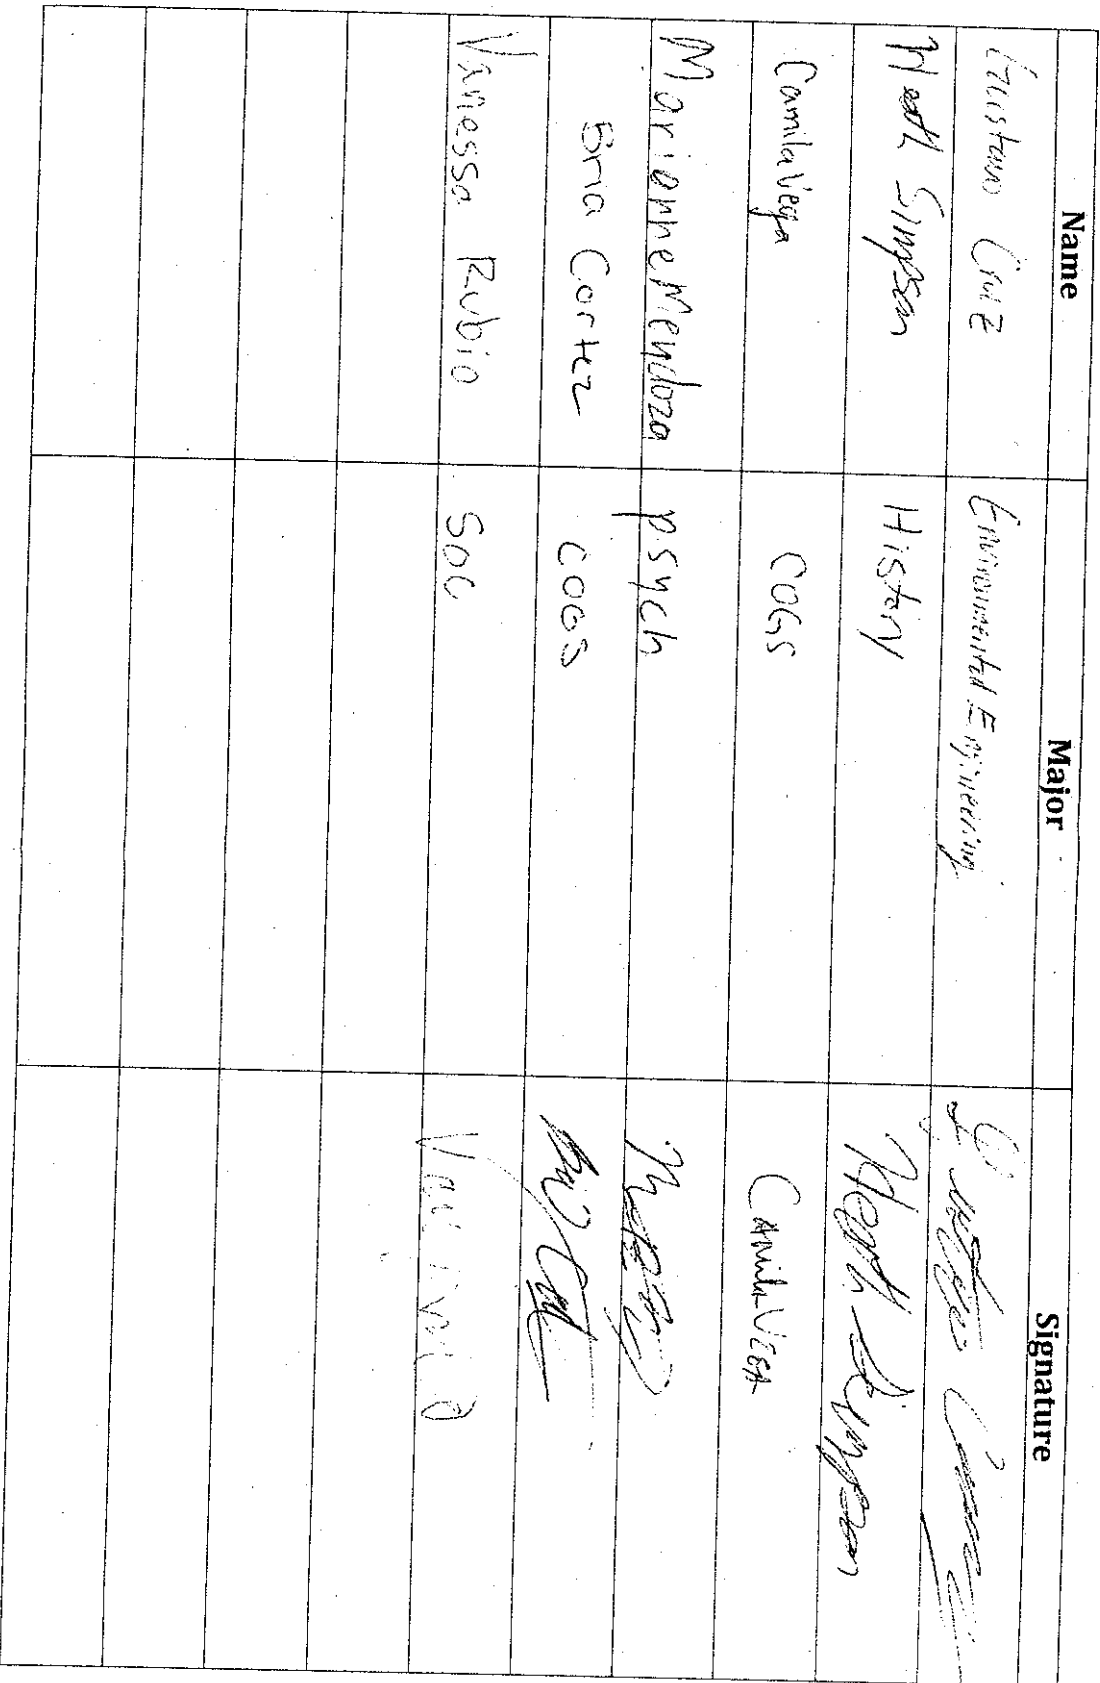 Name Major Signature
Cruz Environmental Engineering
Heath Simpson History Heath Simpson
Camila Vega COGS Camila VEGA
Marianne Mendoza psych
Bria Cortez COGS
Vanessa Rubio Soc